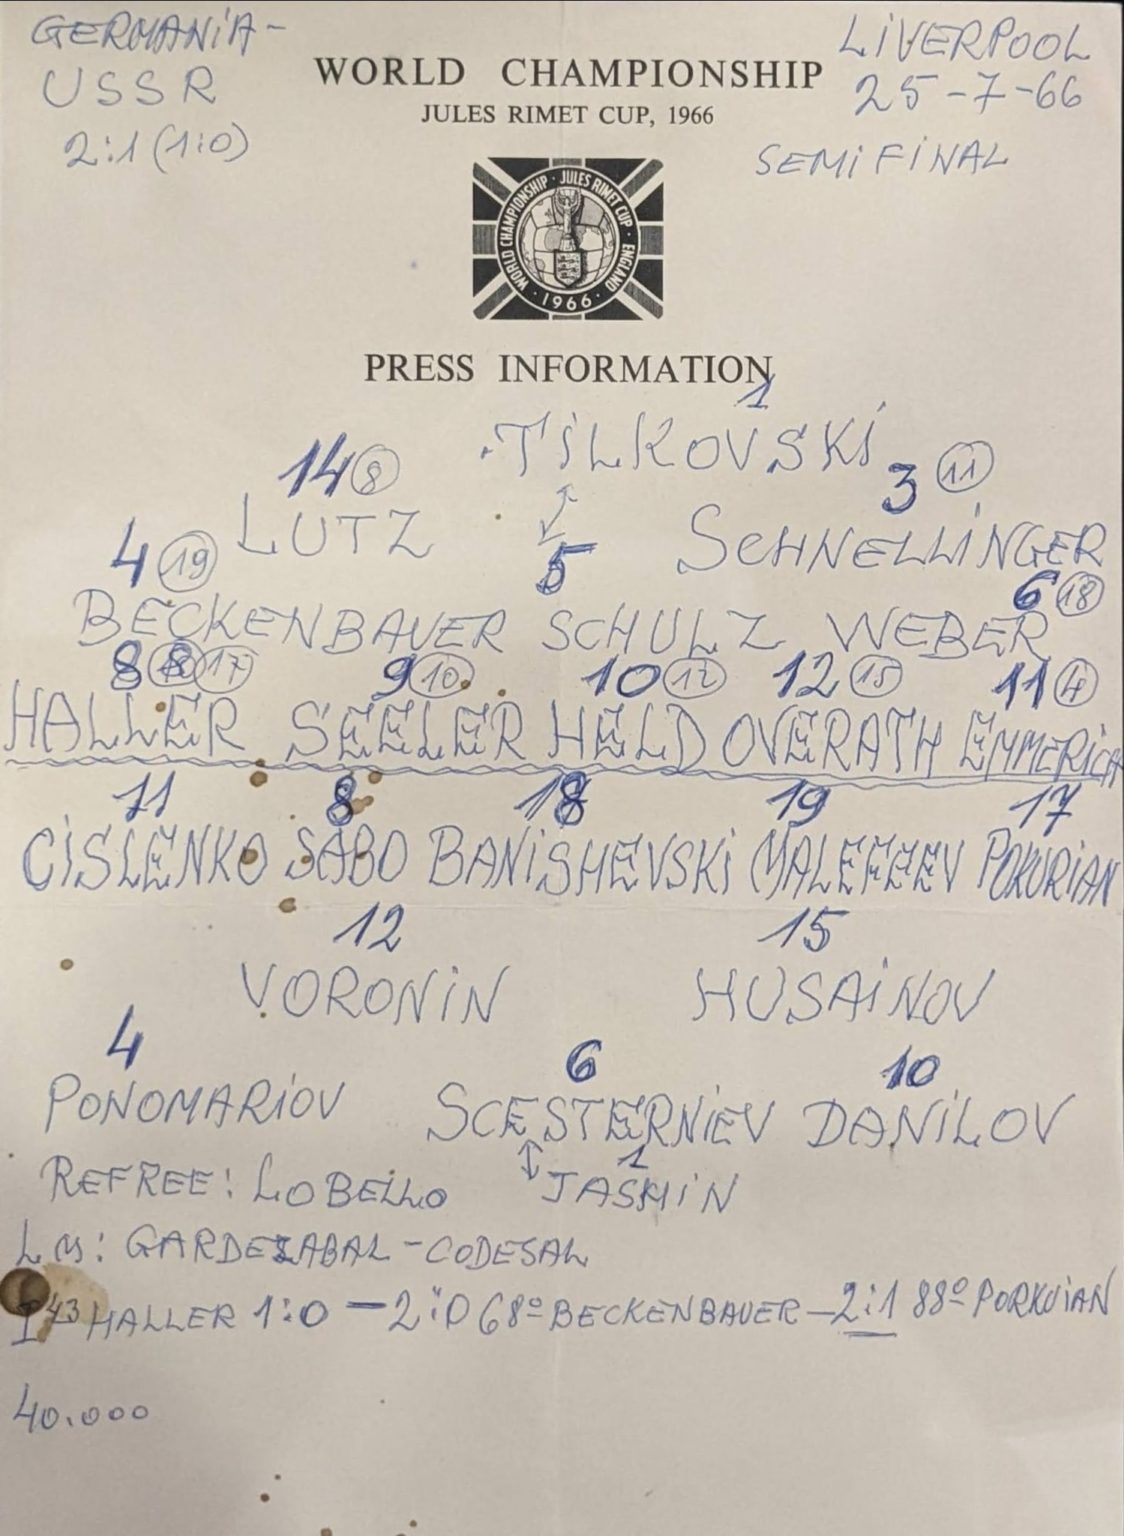 GERMANIA-
USSR
2:1 (1:0)
LIVERPOOL
25-7-66
SEMIFINAL
WORLD CHAMPIONSHIP
JULES RIMET CUP, 1966
WORLD CHAMPIONSHIP · JULES RIMET CUP · ENGLAND · 1966 ·
PRESS INFORMATION
1
TILKOVSKI
14 8 3 11
LUTZ SCHNELLINGER
4 19 5 6 18
BECKENBAUER SCHULZ WEBER
8 17 9 10 10 12 12 15 11 4
HALLER SEELER HELD OVERATH EMMERICH
11 8 18 19 17
CISLENKO SABO BANISHEVSKI MALEFEEV POKURIAN
12 15
VORONIN HUSAINOV
4 6 10
PONOMARIOV SCESTERNIEV DANILOV
1
REFREE: LOBELLO JASHIN
LM: GARDEZABAL - CODESAL
I 43 HALLER 1:0 - 2:0 68º BECKENBAUER - 2:1 88º PORKUIAN
40.000